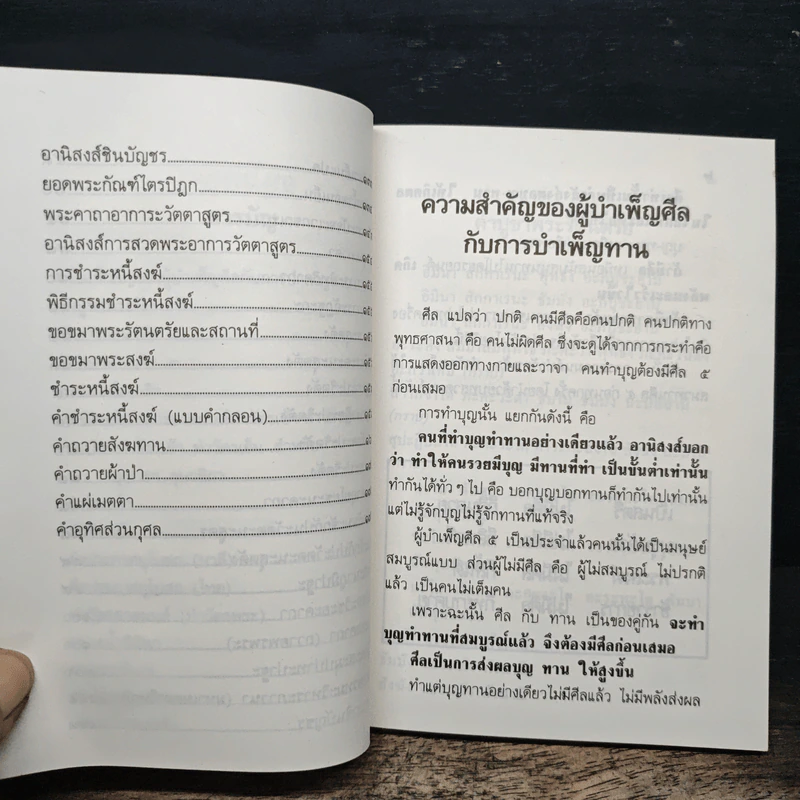 อานิสงส์ชินบัญชร
ยอดพระกัณฑ์ไตรปิฎก
พระคาถาอาการะวัตตาสูตร
อานิสงส์การสวดพระอาการวัตตาสูตร
การชำระหนี้สงฆ์
พิธีกรรมชำระหนี้สงฆ์
ขอขมาพระรัตนตรัยและสถานที่
ขอขมาพระสงฆ์
ชำระหนี้สงฆ์
คำชำระหนี้สงฆ์ (แบบคำกลอน)
คำถวายสังฆทาน
คำถวายผ้าป่า
คำแผ่เมตตา
คำอุทิศส่วนกุศล
ความสำคัญของผู้บำเพ็ญศีล
กับการบำเพ็ญทาน
ศีล แปลว่า ปกติ คนมีศีลคือคนปกติ คนปกติทาง
พุทธศาสนา คือ คนไม่ผิดศีล ซึ่งจะดูได้จากการกระทำคือ
การแสดงออกทางกายและวาจา คนทำบุญต้องมีศีล ๕
ก่อนเสมอ
การทำบุญนั้น แยกกันดังนี้ คือ
คนที่ทำบุญทำทานอย่างเดียวแล้ว อานิสงส์บอก
ว่า ทำให้คนรวยมีบุญ มีทานที่ทำ เป็นขั้นต่ำเท่านั้น
ทำกันได้ทั่ว ๆ ไป คือ บอกบุญบอกทานก็ทำกันไปเท่านั้น
แต่ไม่รู้จักบุญไม่รู้จักทานที่แท้จริง
ผู้บำเพ็ญศีล ๕ เป็นประจำแล้วคนนั้นได้เป็นมนุษย์
สมบูรณ์แบบ ส่วนผู้ไม่มีศีล คือ ผู้ไม่สมบูรณ์ ไม่ปรกติ
แล้ว เป็นคนไม่เต็มคน
เพราะฉะนั้น ศีล กับ ทาน เป็นของคู่กัน จะทำ
บุญทำทานที่สมบูรณ์แล้ว จึงต้องมีศีลก่อนเสมอ
ศีลเป็นการส่งผลบุญ ทาน ให้สูงขึ้น
ทำแต่บุญทานอย่างเดียวไม่มีศีลแล้ว ไม่มีพลังส่งผล